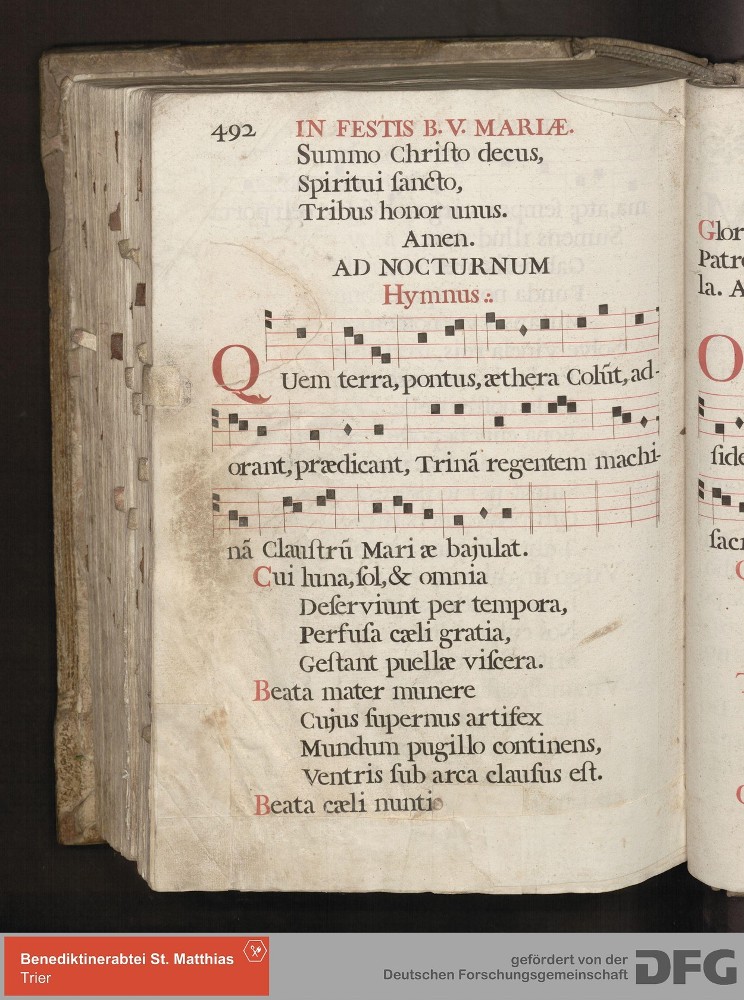 492 IN FESTIS B. V. MARIÆ.
Summo Chriſto decus,
Spiritui ſancto,
Tribus honor unus.
Amen.
AD NOCTURNUM
Hymnus.
QUem terra, pontus, æthera Colũt, ad-
orant, prædicant, Trinã regentem machi-
nã Clauſtrũ Mariæ bajulat.
Cui luna, ſol, & omnia
Deſerviunt per tempora,
Perfuſa cæli gratia,
Geſtant puellæ viſcera.
Beata mater munere
Cujus ſupernus artifex
Mundum pugillo continens,
Ventris ſub arca clauſus eſt.
Beata cæli nuntio
Glor
Patr
la. A
O
ſide
ſacr
Benediktinerabtei St. Matthias
Trier
gefördert von der
Deutschen Forschungsgemeinschaft
DFG